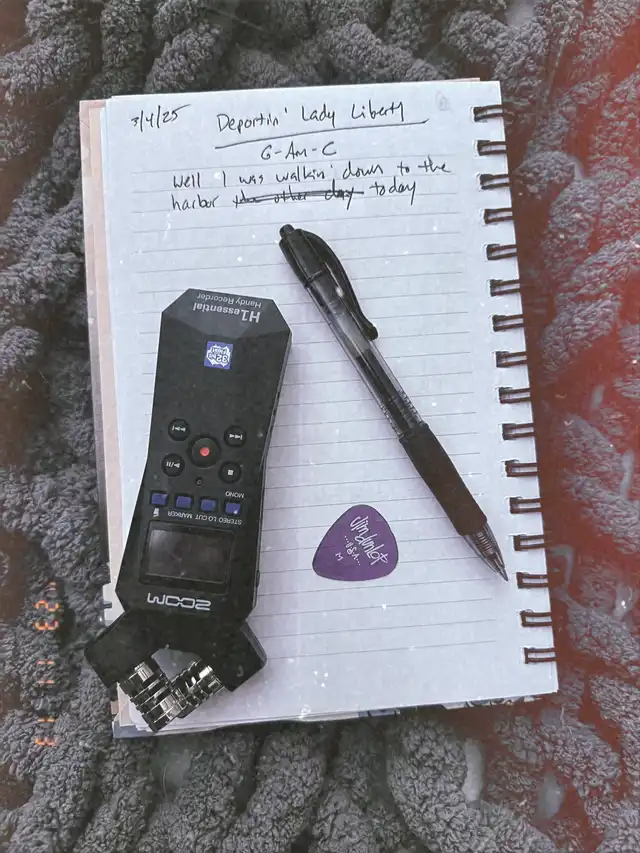 3/4/25
Deportin' Lady Liberty
G-Am-C
Well I was walkin' down to the
harbor the other day today
H1essential
Handy Recorder
MONO
STEREO LO CUT MARKER
zoom
Jim Dunlop
USA
M